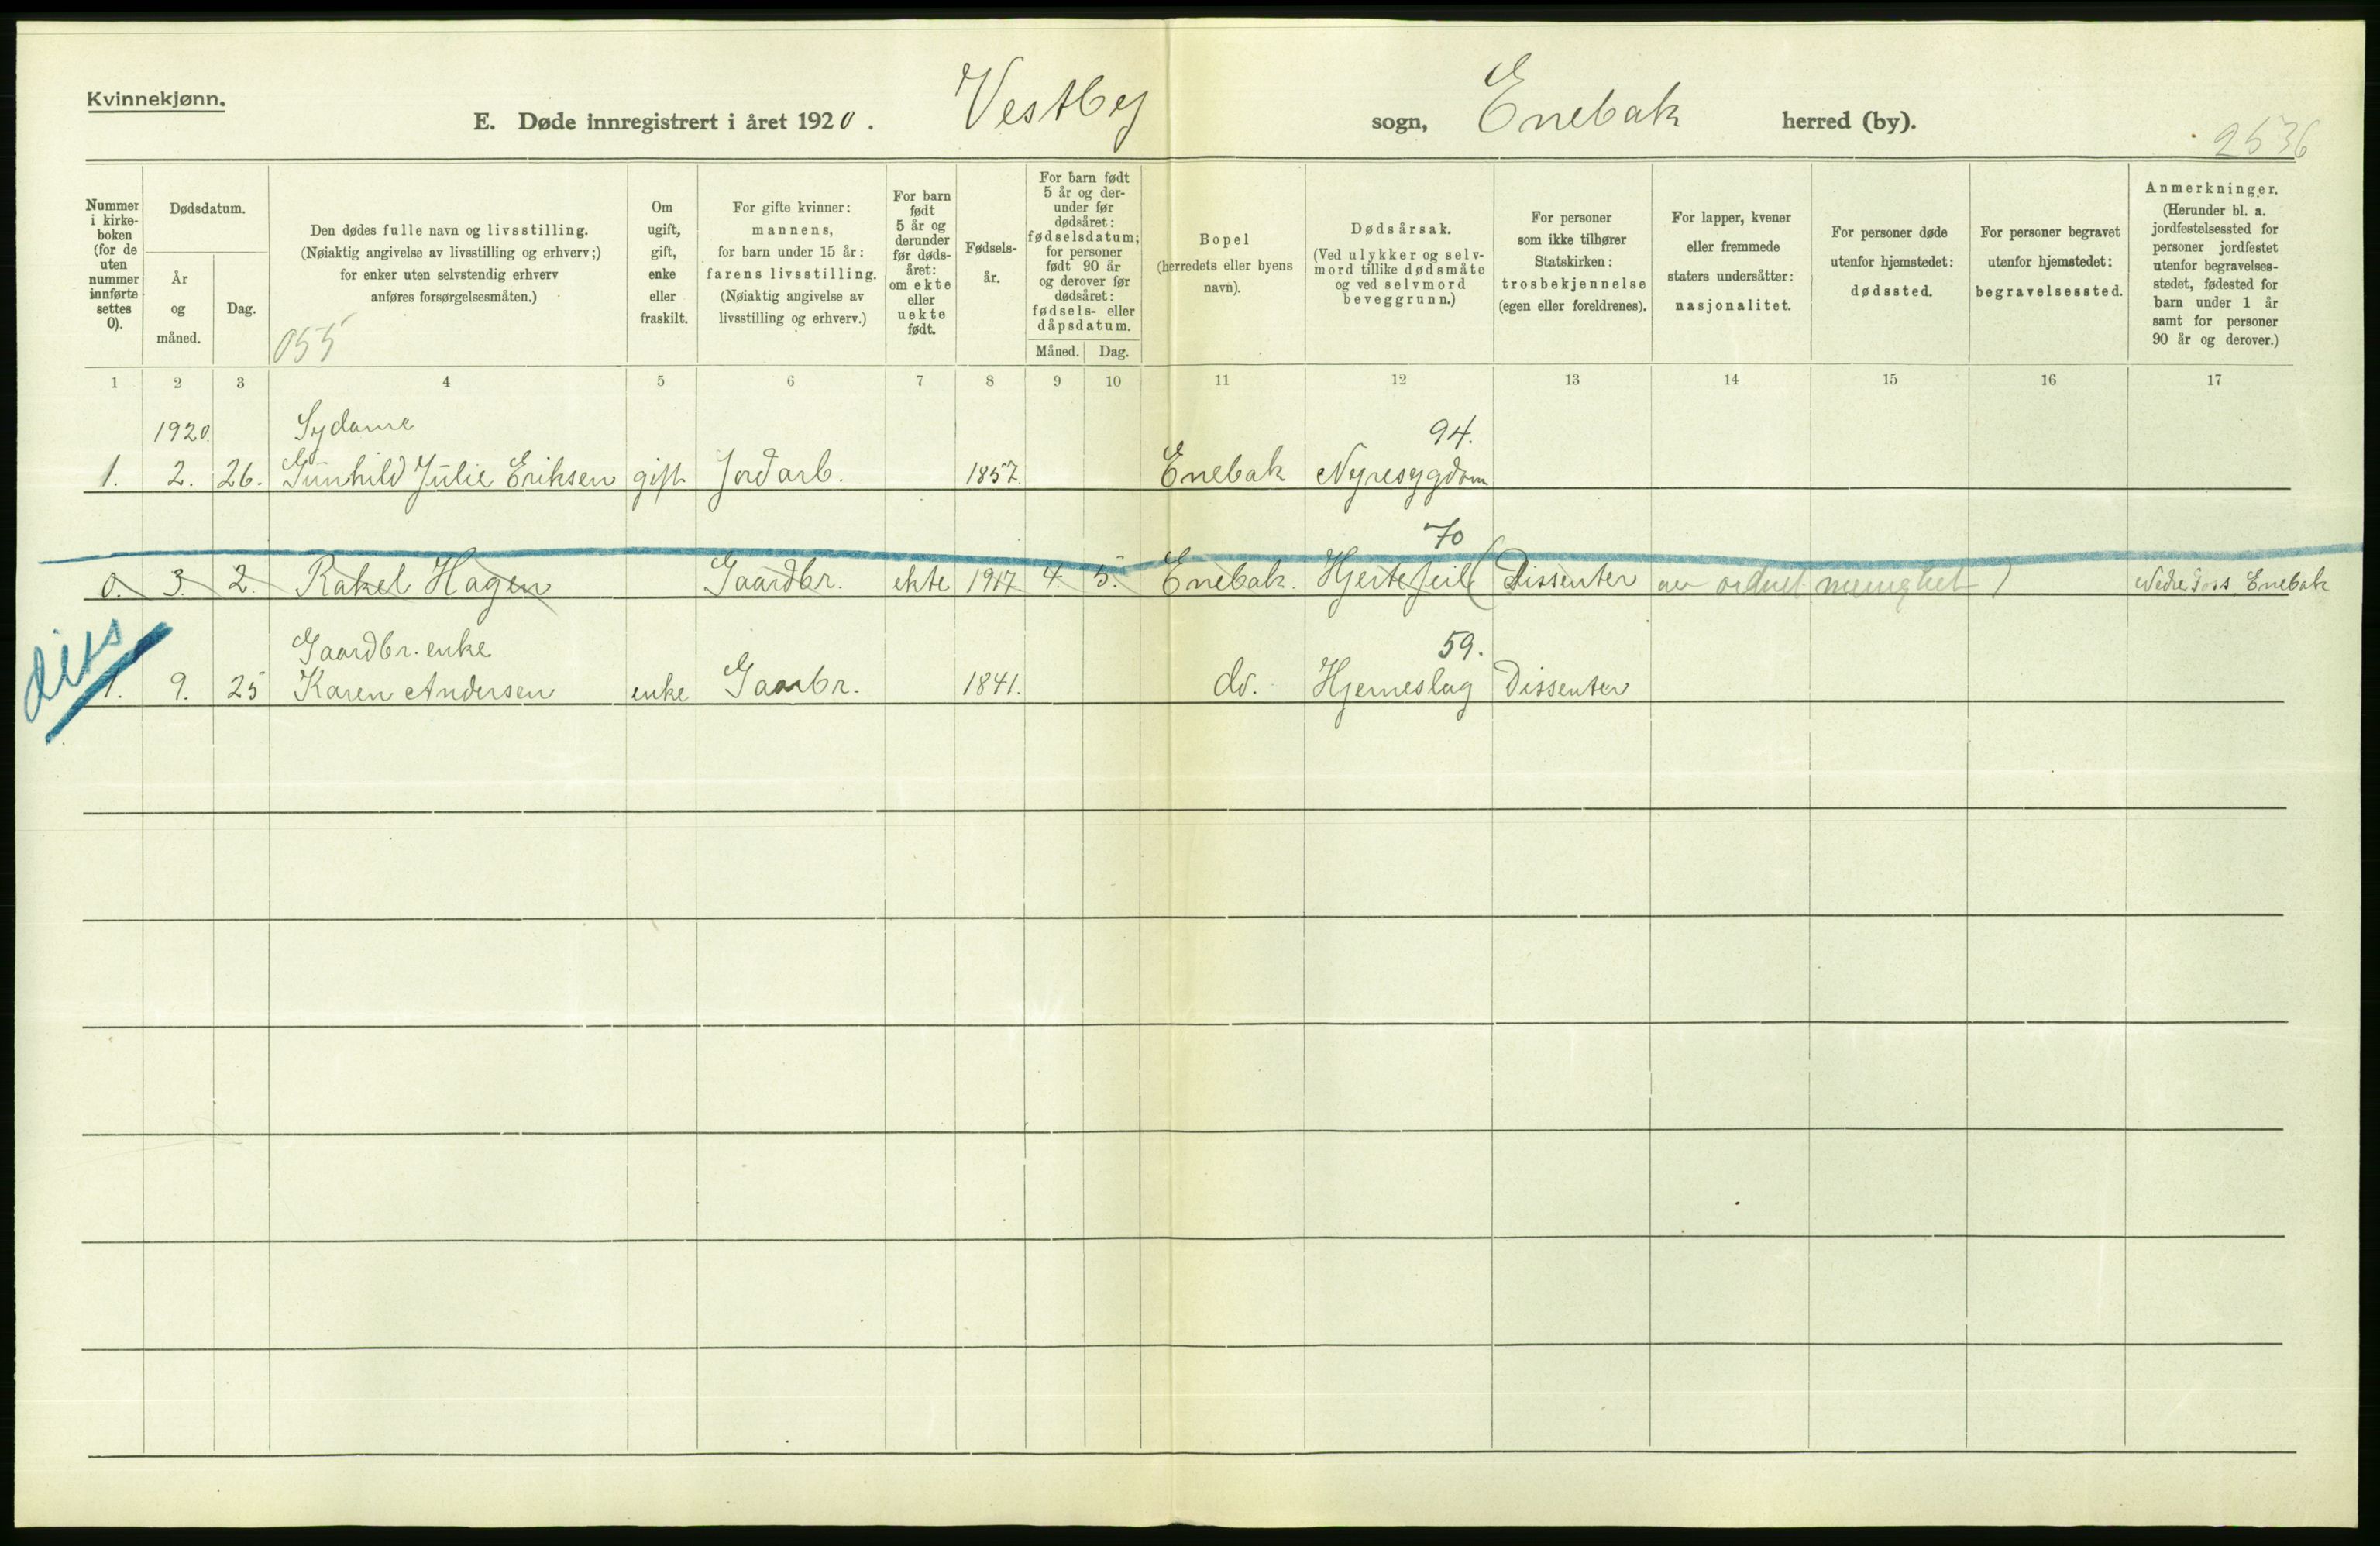 Kvinnekjønn.
E. Døde innregistrert i året 1920. Vestby sogn, Enebak herred (by).
2536
Nummer i kirkeboken (for de uten nummer innførte settes 0).
Dødsdatum.
År og måned.
Dag.
Den dødes fulle navn og livsstilling.
(Nøiaktig angivelse av livsstilling og erhverv;)
for enker uten selvstendig erhverv
anføres forsørgelsesmåten.)
055
Om ugift, gift, enke eller fraskilt.
For gifte kvinner:
mannens,
for barn under 15 år:
farens livsstilling.
(Nøiaktig angivelse av
livsstilling og erhverv.)
For barn født 5 år og derunder før dødsåret: om ekte eller uekte født.
Fødselsår.
For barn født
5 år og derunder før
dødsåret:
fødselsdatum;
for personer
født 90 år
og derover før
dødsåret:
fødsels- eller
dåpsdatum.
Måned. Dag.
Bopel
(herredets eller byens
navn).
Dødsårsak.
(Ved ulykker og selvmord tillike dødsmåte
og ved selvmord
beveggrunn.)
For personer
som ikke tilhører
Statskirken:
trosbekjennelse
(egen eller foreldrenes).
For lapper, kvener
eller fremmede
staters undersåtter:
nasjonalitet.
For personer døde
utenfor hjemstedet:
dødssted.
For personer begravet
utenfor hjemstedet:
begravelsessted.
Anmerkninger.
(Herunder bl. a.
jordfestelsessted for
personer jordfestet
utenfor begravelsesstedet, fødested for
barn under 1 år
samt for personer
90 år og derover.)
1 2 3 4 5 6 7 8 9 10 11 12 13 14 15 16 17
1920. Sydame 94.
1. 2. 26. Gunhild Julie Eriksen gift Jordarb. 1857. Enebak Nyresygdom
70
0. 3. 2. Rakel Hagen Gaardbr. ekte 1917 4. 5. Enebak. Hjertefeil (Dissenter av ordnet menighet) Nedre Enebak
diss
Gaardbr. enke 59.
1. 9. 25 Karen Andersen enke Gaarbr. 1841. do. Hjerneslag Dissenter